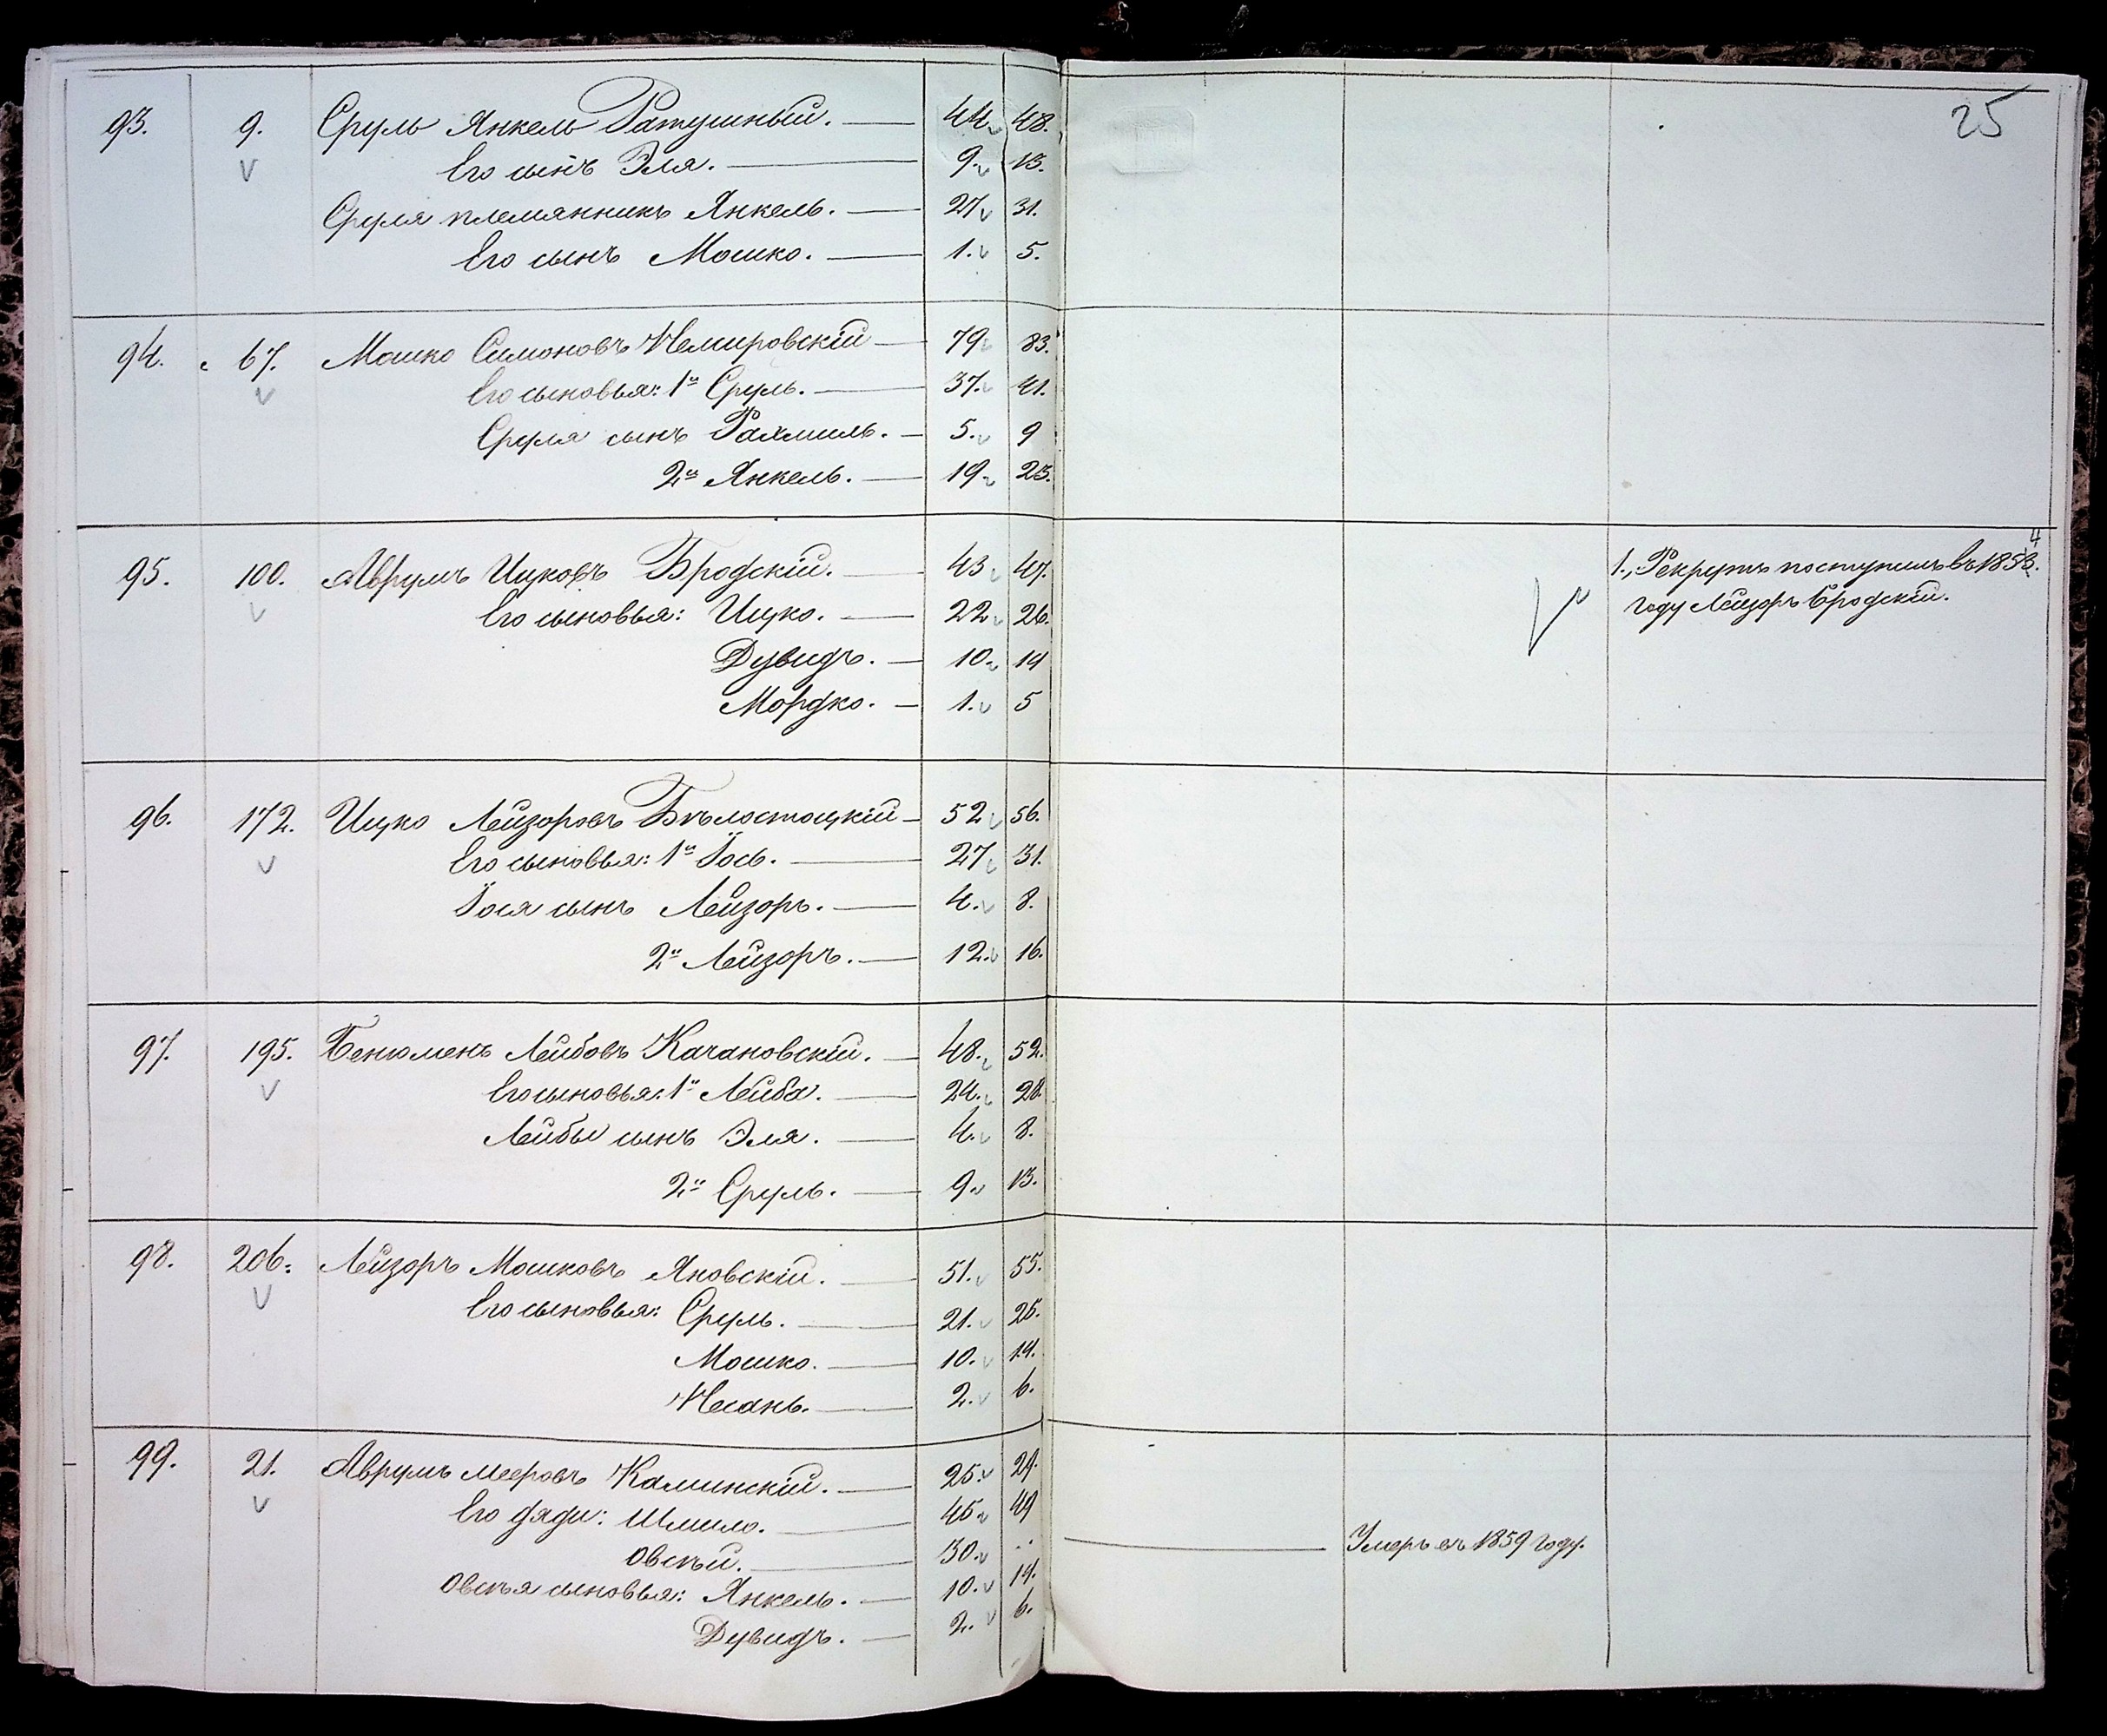 25
93. 9. Сруль Янкель Ратушный. 44. 48.
Его сынъ Эля. 9. 13.
Сруля племянникъ Янкель. 27 31.
Его сынъ Мошко. 1. 5.
94. 67. Мошко Симоновъ Немировскій 79 83.
Его сыновья: 1й Сруль. 37. 41.
Сруля сынъ Рахмиль. 5. 9
2й Янкель. 19 23.
95. 100. Аврумъ Ицковъ Бродскій. 43 47.
Его сыновья: Ицко. 22 26.
Дувидъ. 10. 14
Мордко. 1. 5
4
1., Рекрутъ поступилъ въ 1853.
году Лейзоръ Бродскій.
96. 172. Ицко Лейзоровъ Бѣлостоцкій 52 56.
Его сыновья: 1й Іось. 27 31.
Іося сынъ Лейзоръ. 4. 8.
2й Лейзоръ. 12. 16.
97. 195. Бенюменъ Лейбовъ Качановскій. 48. 52.
Его сыновья: 1й Лейба. 24. 28.
Лейбы сынъ Эля. 4. 8.
2й Сруль. 9. 13.
98. 206. Лейзоръ Мошковъ Яновскій. 51. 55.
Его сыновья: Сруль. 21. 25.
Мошко. 10. 14.
Несань. 2. 6.
99. 21. Аврумъ Мееровъ Каминскій. 25. 29.
Его дяди: Шмило. 45 49
Овсѣй. 30.
Умеръ въ 1859 году.
Овсѣя сыновья: Янкель. 10. 14.
Дувидъ. 2. 6.